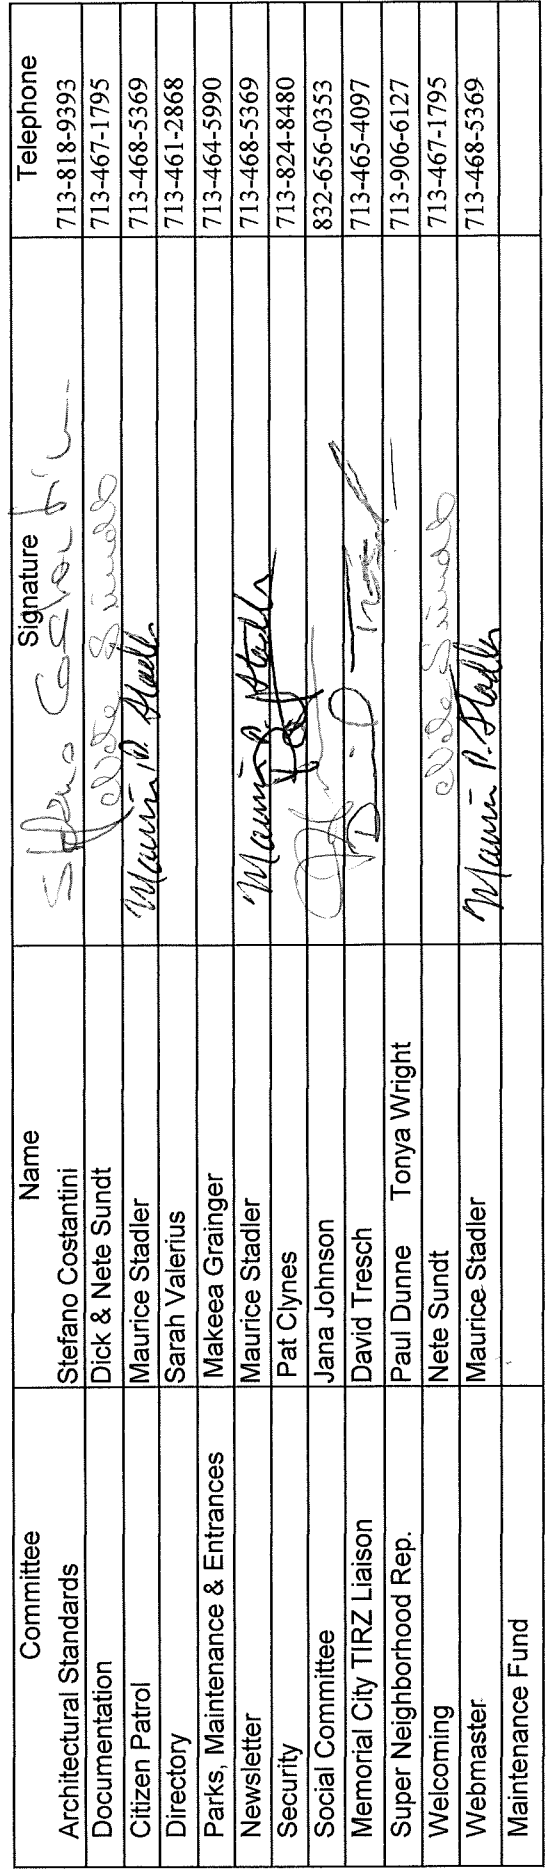 Committee Name Signature Telephone
Architectural Standards Stefano Costantini Stefano Costantini 713-818-9393
Documentation Dick & Nete Sundt Nete Sundt 713-467-1795
Citizen Patrol Maurice Stadler Maurice P. Stadler 713-468-5369
Directory Sarah Valerius 713-461-2868
Parks, Maintenance & Entrances Makeea Grainger 713-464-5990
Newsletter Maurice Stadler Maurice P. Stadler 713-468-5369
Security Pat Clynes 713-824-8480
Social Committee Jana Johnson 832-656-0353
Memorial City TIRZ Liaison David Tresch 713-465-4097
Super Neighborhood Rep. Paul Dunne Tonya Wright 713-906-6127
Welcoming Nete Sundt Nete Sundt 713-467-1795
Webmaster Maurice Stadler Maurice P. Stadler 713-468-5369
Maintenance Fund